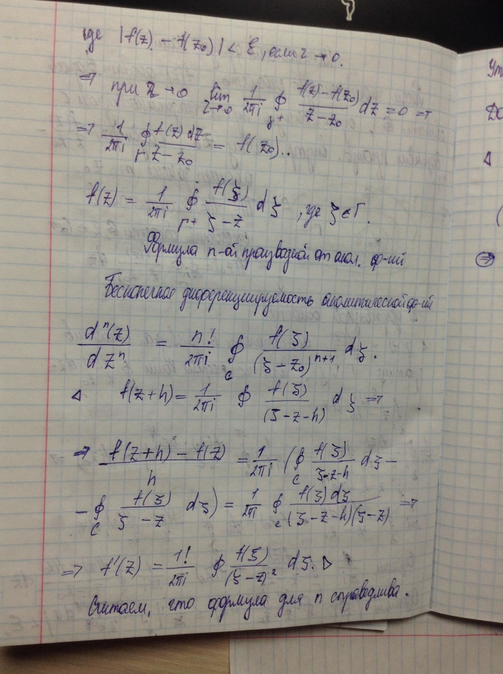 где |f(z) - f(z₀)| < ε, если r → 0.
⇒ при r → 0 lim_{r→0} 1/2πi ∮_{γ+} f(z)-f(z₀)/z-z₀ dz = 0 ⇒
⇒ 1/2πi ∮_{Γ} f(z)dz/z-z₀ = f(z₀)..
f(z) = 1/2πi ∮_{Γ+} f(ξ)/ξ-z dξ, где ξ∈Γ.
Формула n-ой производной от анал. ф-ий
Бесконечная дифференцируемость аналитической ф-ий
dⁿ(z)/dzⁿ = n!/2πi ∮_C f(ξ)/(ξ-z₀)ⁿ⁺¹ dξ.
Δ f(z+h) = 1/2πi ∮ f(ξ)/(ξ-z-h) dξ ⇒
⇒ f(z+h) - f(z)/h = 1/2πi (∮_C f(ξ)/ξ-z-h dξ -
- ∮_C f(ξ)/ξ-z dξ) = 1/2πi ∮_C f(ξ)dξ/(ξ-z-h)(ξ-z) ⇒
⇒ f'(z) = 1!/2πi ∮ f(ξ)/(ξ-z)² dξ. ▷
Считаем, что формула для n справедлива.